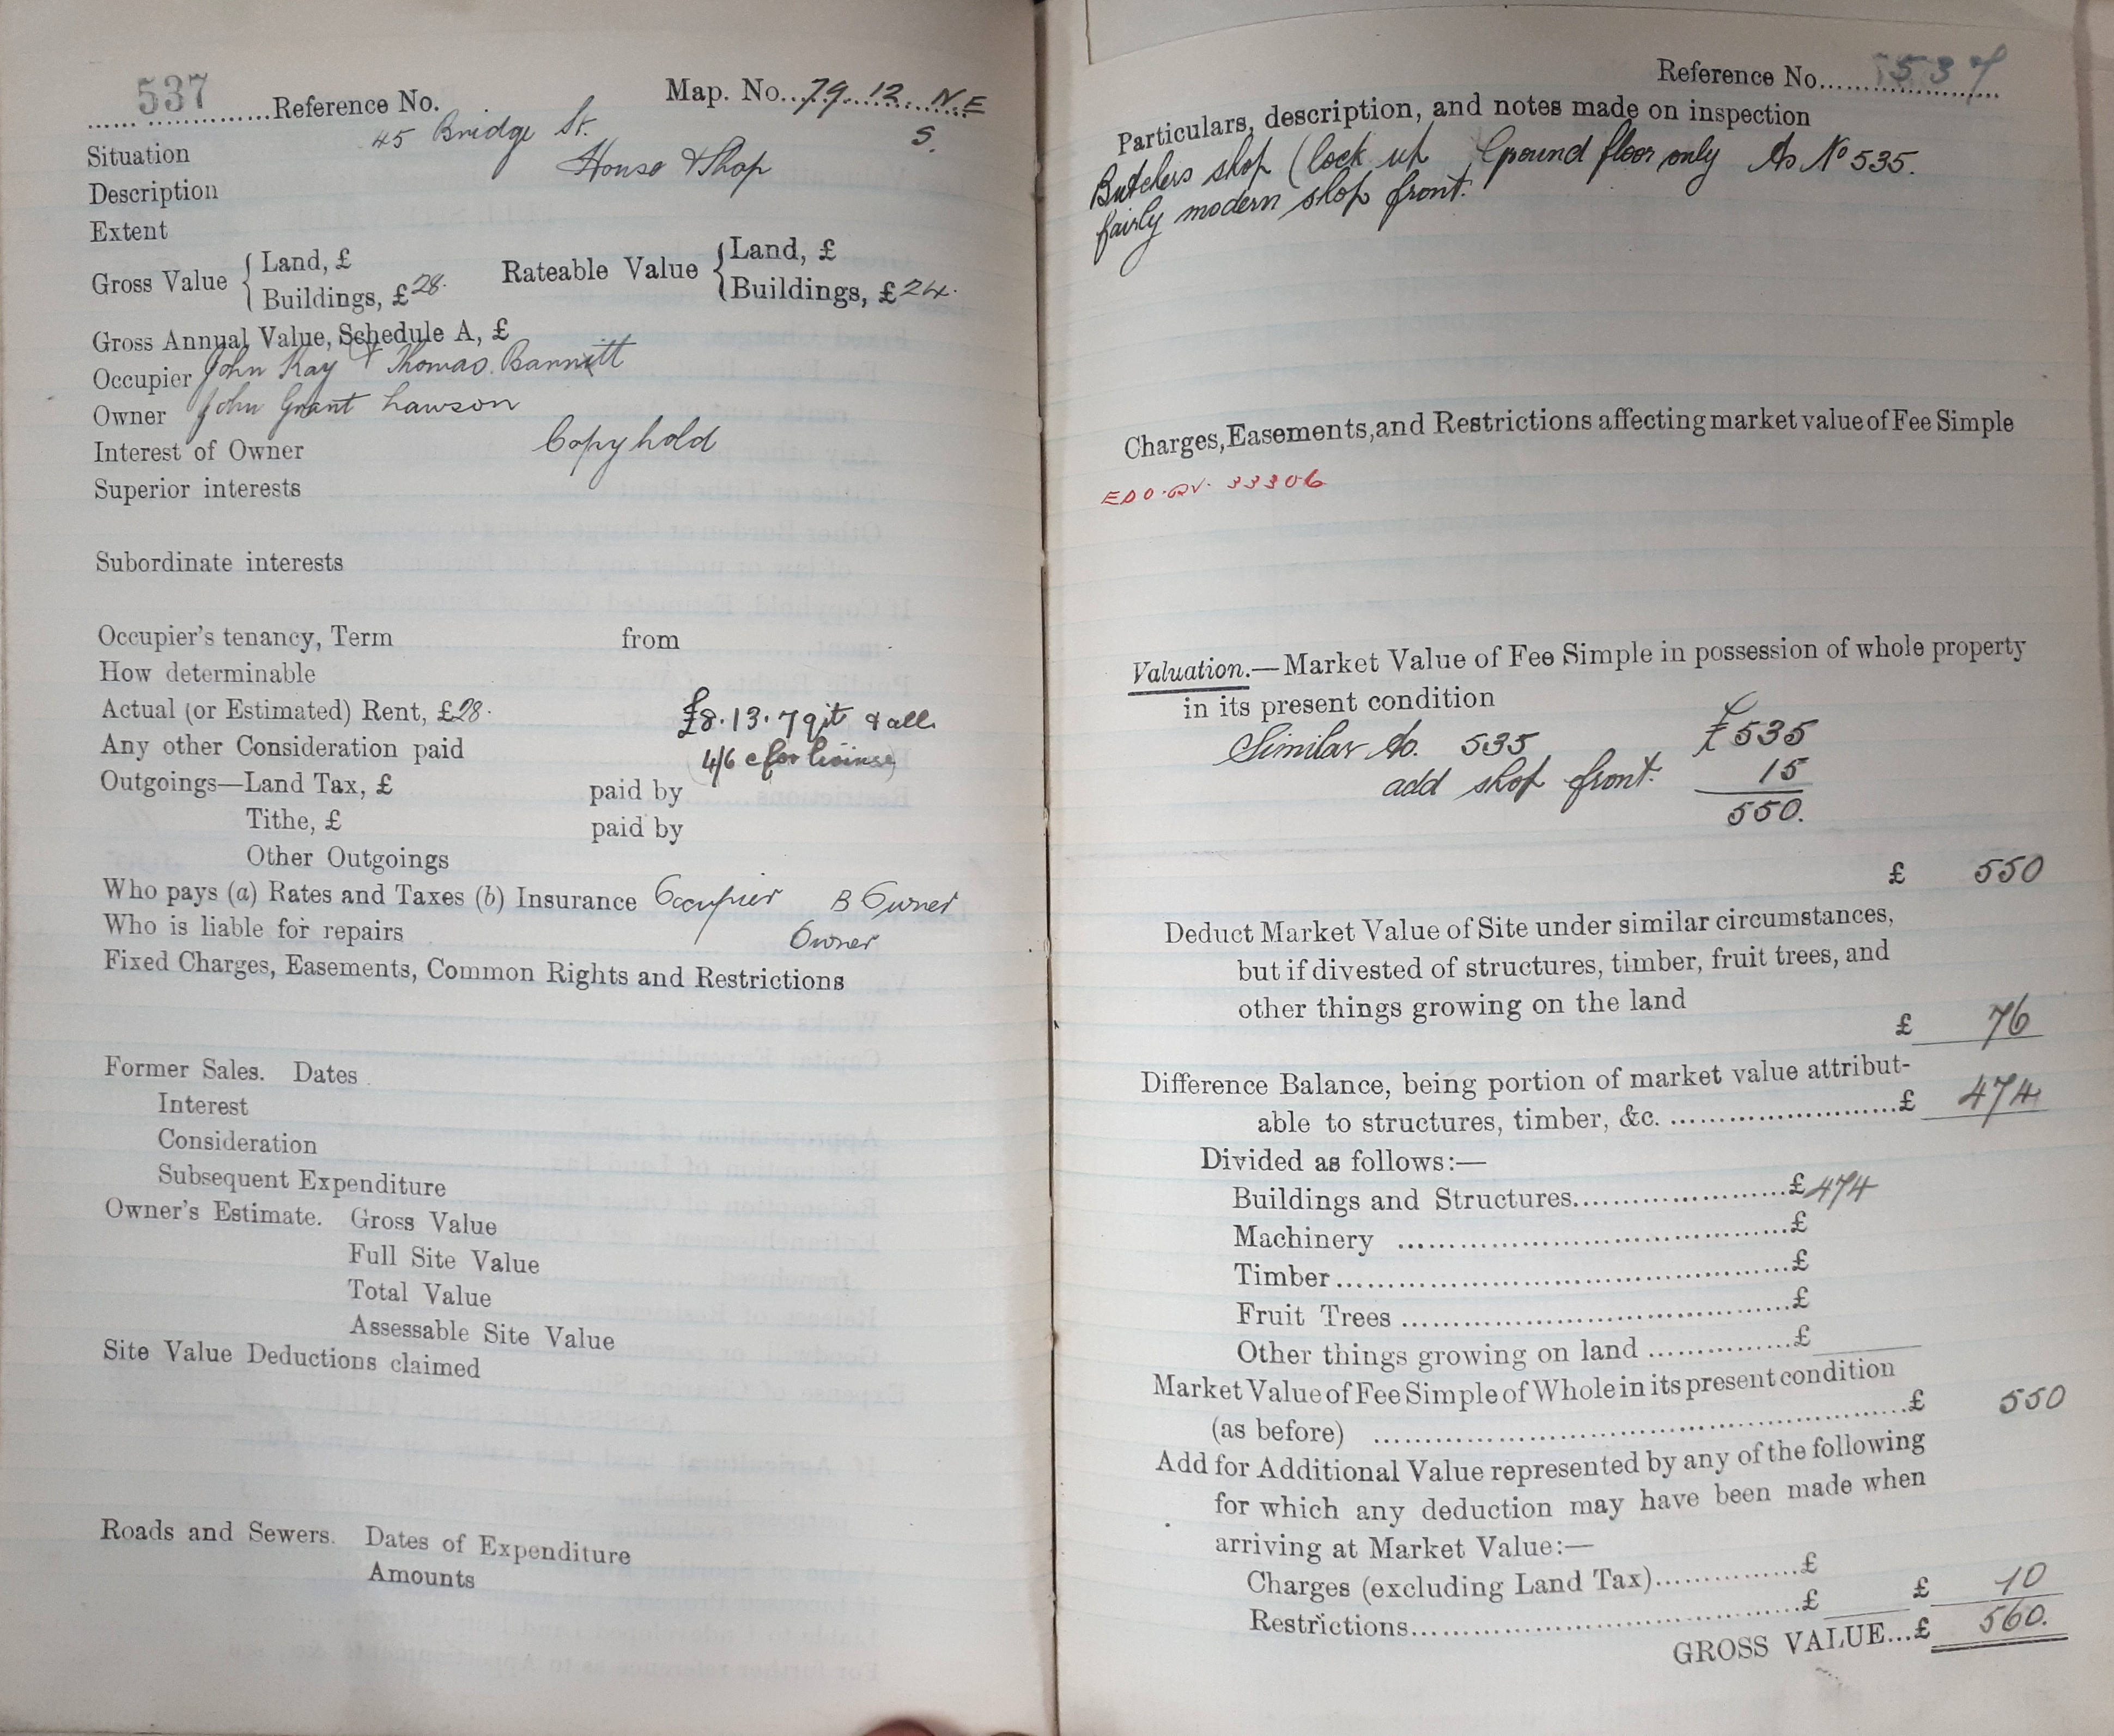 537 Reference No. Map. No. 79. 12. N.E
S.
Situation 45 Bridge St.
Description House & Shop
Extent
Gross Value { Land, £ Rateable Value { Land, £
Buildings, £28. Buildings, £24.
Gross Annual Value, Schedule A, £
Occupier John Kay & Thomas Bannitt
Owner John Grant Lawson
Interest of Owner Copyhold
Superior interests
Subordinate interests
Occupier's tenancy, Term from
How determinable
Actual (or Estimated) Rent, £28. £8.13.7 qit & all.
Any other Consideration paid 4/6 for
Outgoings—Land Tax, £ paid by
Tithe, £ paid by
Other Outgoings
Who pays (a) Rates and Taxes (b) Insurance Occupier B Owner
Who is liable for repairs Owner
Fixed Charges, Easements, Common Rights and Restrictions
Former Sales. Dates
Interest
Consideration
Subsequent Expenditure
Owner's Estimate. Gross Value
Full Site Value
Total Value
Assessable Site Value
Site Value Deductions claimed
Roads and Sewers. Dates of Expenditure
Amounts
Reference No. 537
Particulars, description, and notes made on inspection
Butchers shop (lock up Ground floor only As No 535.
fairly modern shop front.
Charges, Easements, and Restrictions affecting market value of Fee Simple
33306
Valuation.—Market Value of Fee Simple in possession of whole property
in its present condition
Similar to. 535 £535
add shop front. 15
550.
£ 550
Deduct Market Value of Site under similar circumstances,
but if divested of structures, timber, fruit trees, and
other things growing on the land
£ 76
Difference Balance, being portion of market value attribut-
able to structures, timber, &c. £ 474
Divided as follows:—
Buildings and Structures £474
Machinery £
Timber £
Fruit Trees £
Other things growing on land £
Market Value of Fee Simple of Whole in its present condition
(as before) £ 550
Add for Additional Value represented by any of the following
for which any deduction may have been made when
arriving at Market Value:—
Charges (excluding Land Tax) £
Restrictions £ £ 10
GROSS VALUE...£ 560.